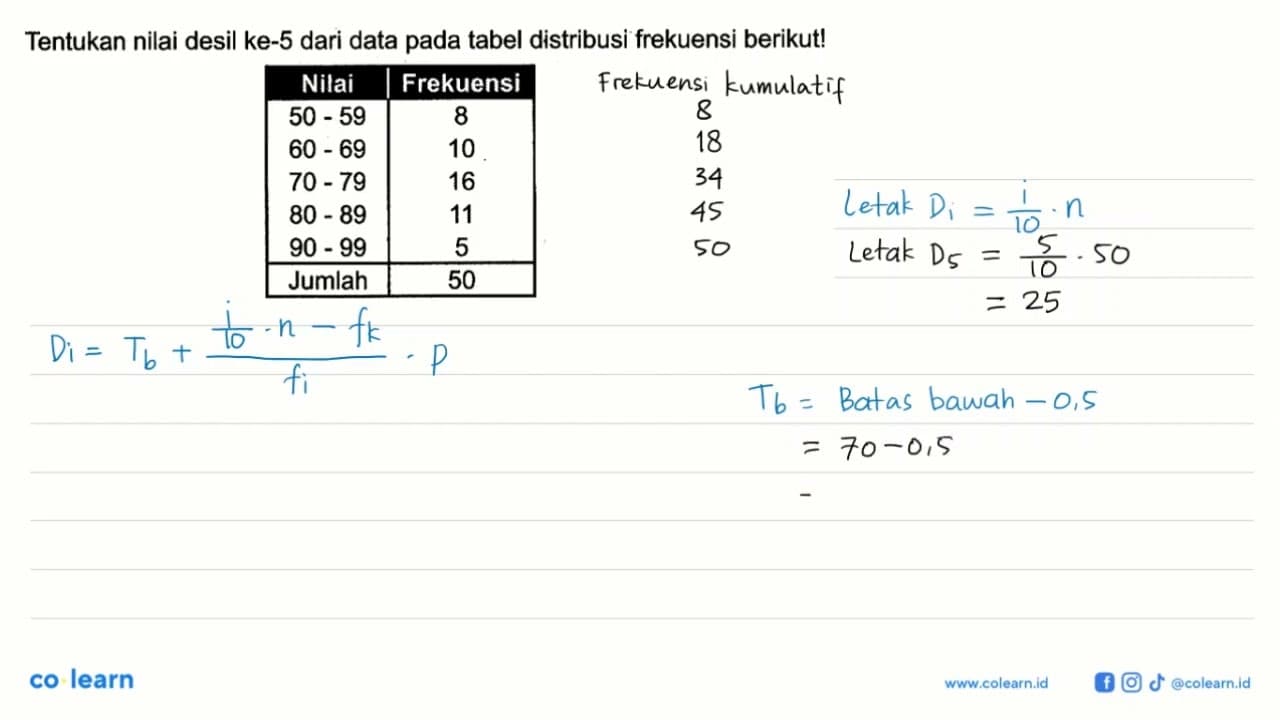 Tentukan nilai desil ke-5 dari data pada tabel distribusi frekuensi berikut!
Nilai Frekuensi Frekuensi kumulatif
50 - 59 8 8
60 - 69 10 18
70 - 79 16 34
80 - 89 11 45
90 - 99 5 50
Jumlah 50
Letak Di = i/10 . n
Letak D5 = 5/10 . 50
= 25
Di = Tb + (i/10 . n - fk)/fi . p
Tb = Batas bawah - 0,5
= 70 - 0,5
-
co learn
www.colearn.id @colearn.id